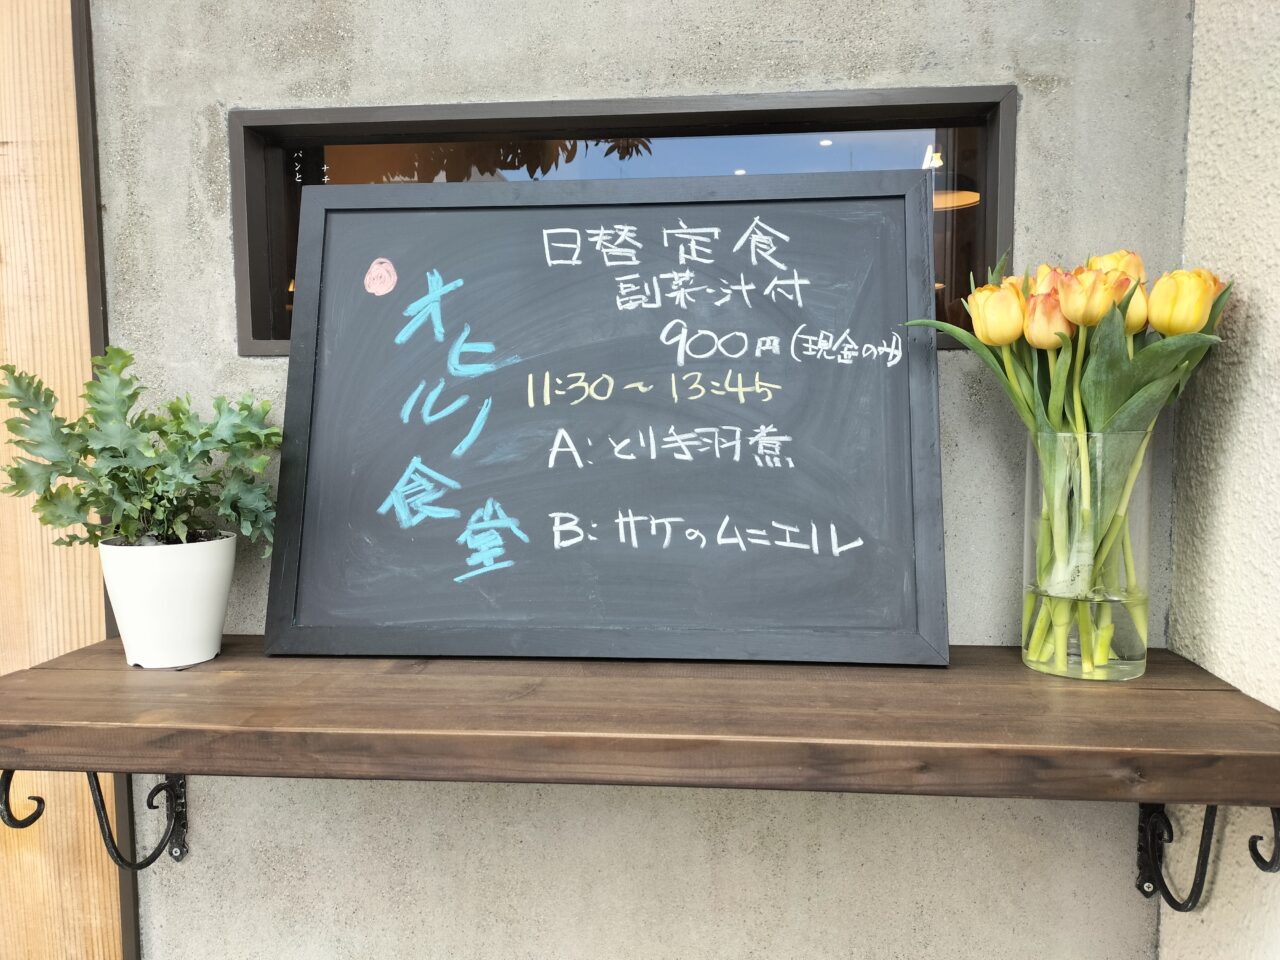 オヒルノ食堂
日替定食
副菜・汁付
900円(現金のみ)
11:30～13:45
A:とり手羽煮
B:サケのムニエル
パンと
ナチ